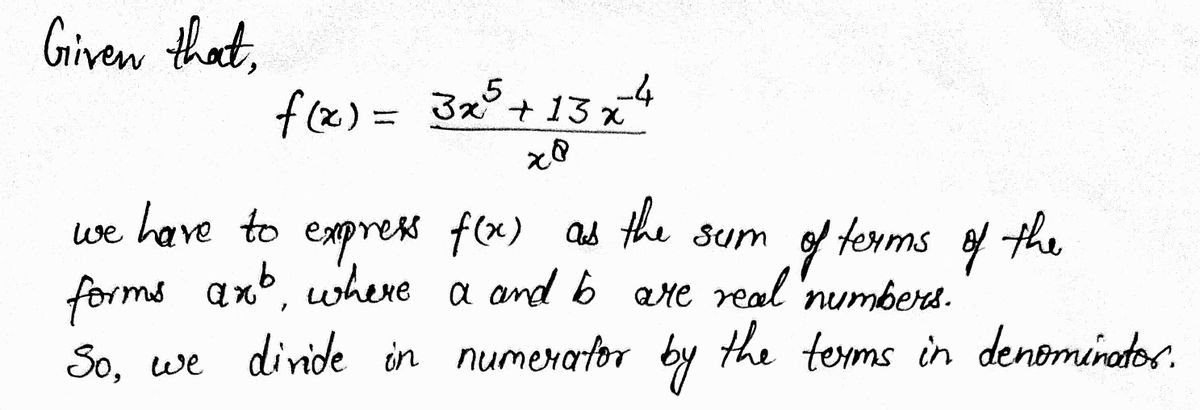 Given that,
f(x) = 3x^5 + 13x^-4 / x^8
we have to express f(x) as the sum of terms of the
forms ax^b, where a and b are real numbers.
So, we divide in numerator by the terms in denominator.